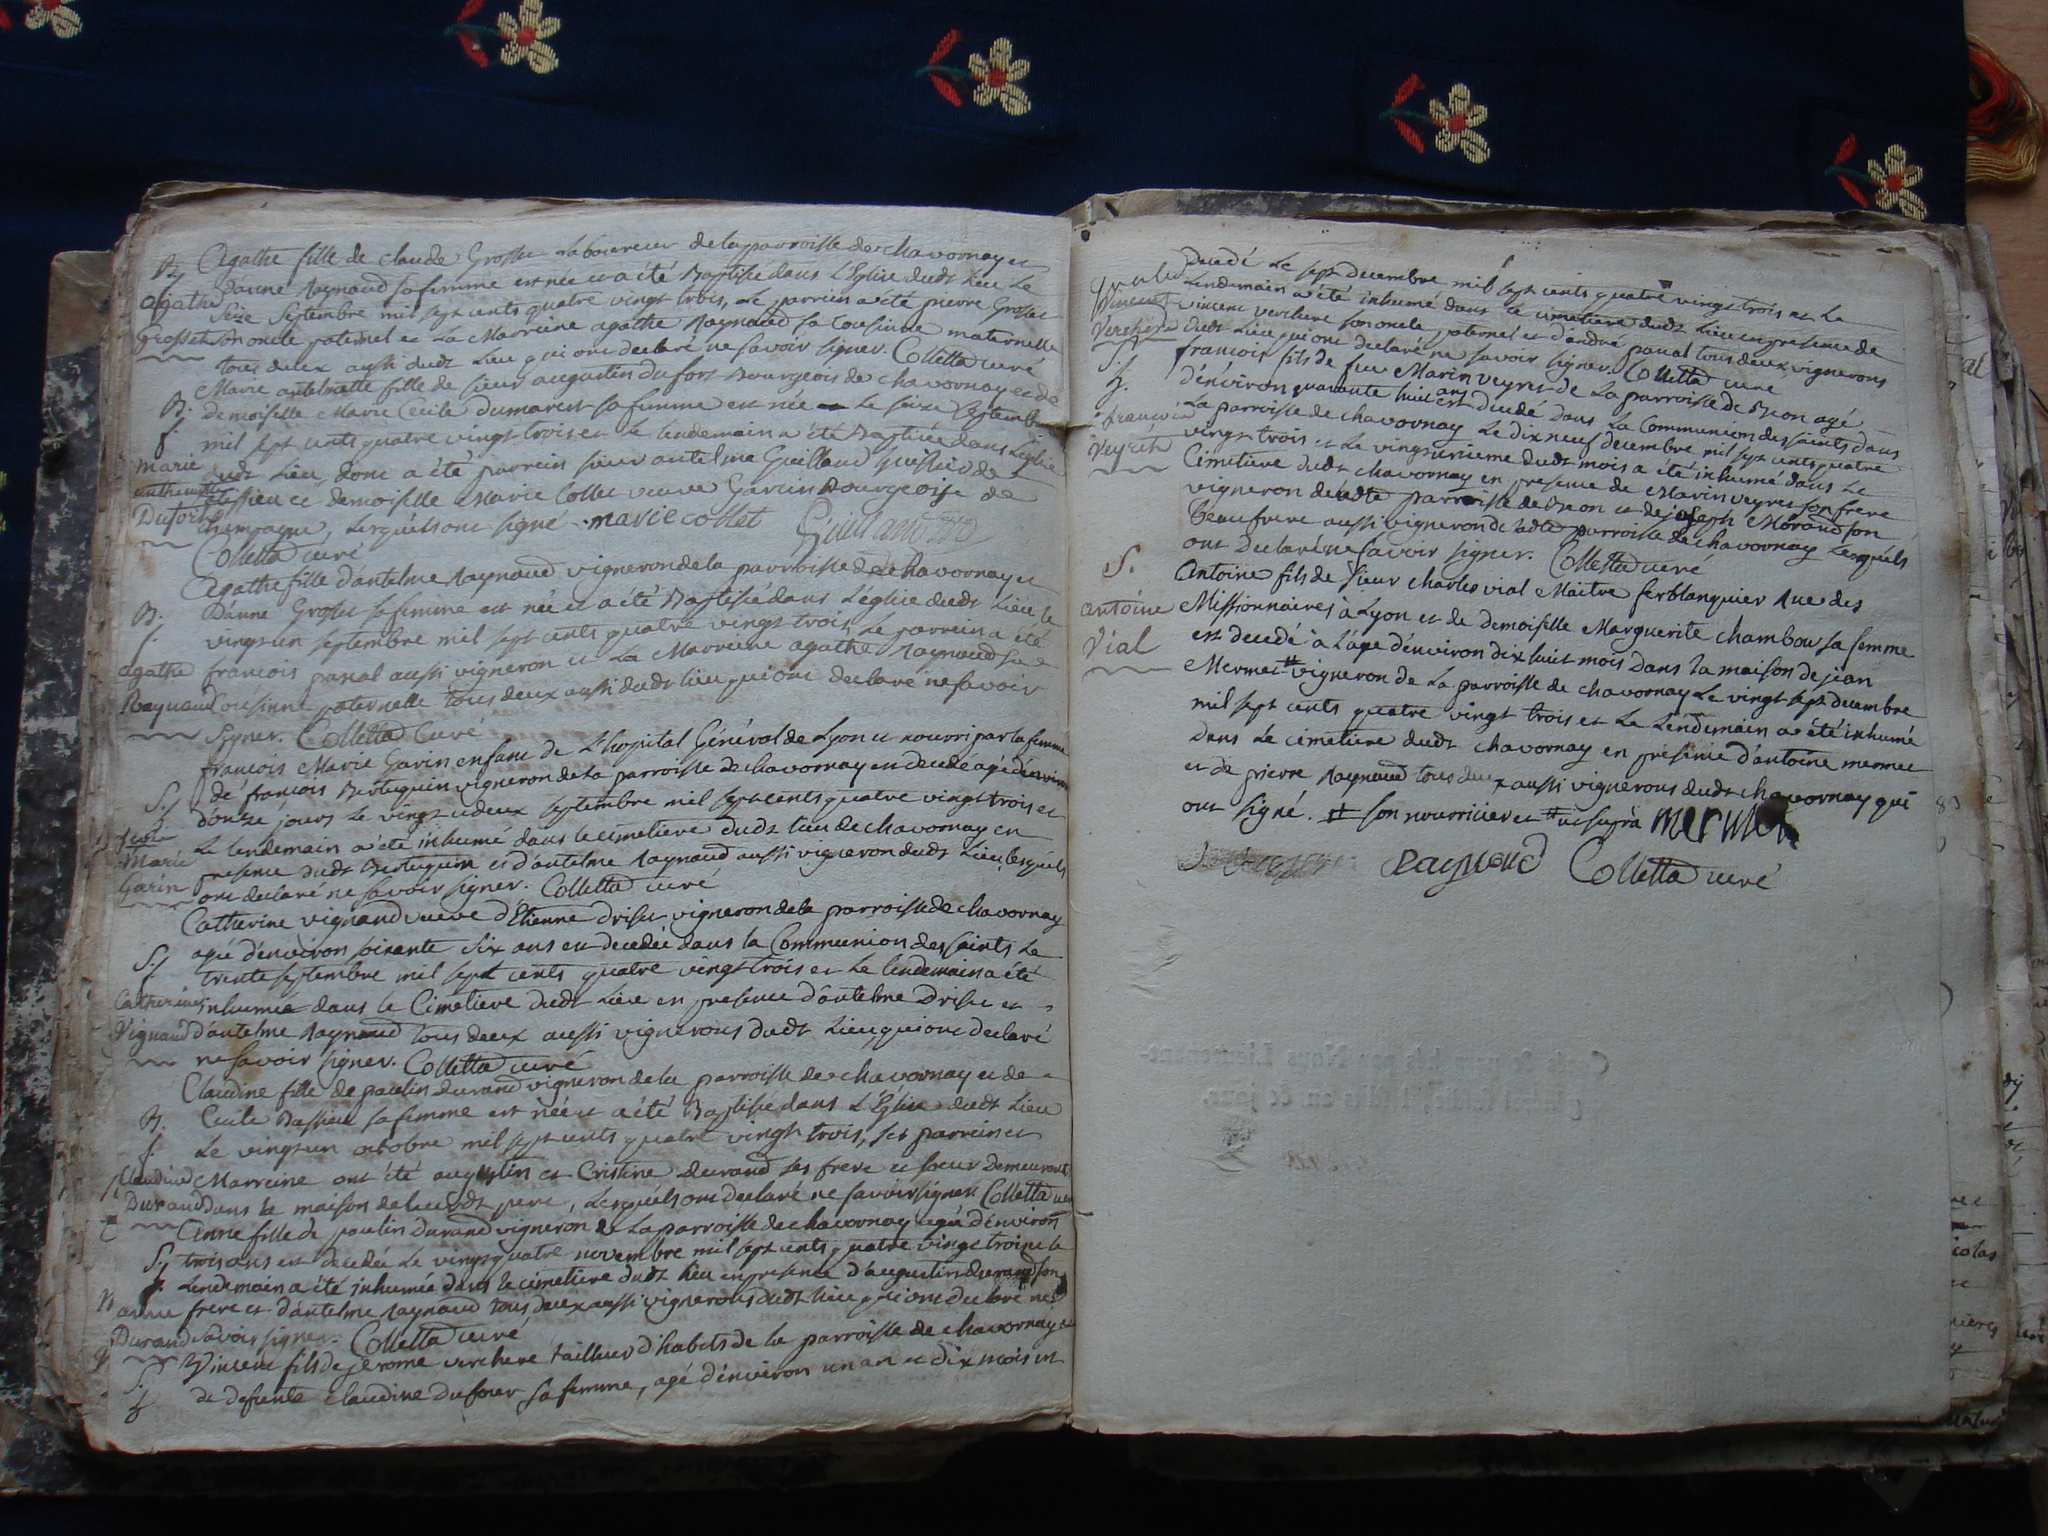 B.
f
agathe
Grosset
Agathe fille de claude Grosset Laboureur de la parroisse de chavornay et
D'anne Raynaud sa femme est née et a été Baptisée dans L'Eglise dudt Lieu Le
Seize Septembre mil sept cents quatre vingt trois, Le parrein a été pierre Grosset
son oncle paternel et La Marreine agathe Raynaud sa Cousinne maternelle
tous deux aussi dudt Lieu qui ont declaré ne savoir signer. Colletta curé
B.
f.
marie
anthemette
Dufort
Marie antelmette fille de sieur augustin dufort Bourgeois de chavornay et de
demoiselle Marie Cecile dumarest sa femme est née Le seize Septembre
mil sept cents quatre vingt trois et Le lendemain a été Baptisée dans L'eglise
dudt Lieu, dont a été parrein sieur antelme Guilland huissier de
et demoiselle Marie Collet veuve Garcin Bourgeoise de
Champagne, Lesquels ont signé. marie collet Guilland
Colletta curé
B.
f.
agathe
Raynaud
Agathe fille d'antelme Raynaud vigneron de la parroisse de chavornay et
D'anne Grosset sa femme est née et a été Baptisée dans L'eglise dudt Lieu Le
vingt un septembre mil sept cents quatre vingt trois, Le parrein a été
francois panal aussi vigneron et La Marreine agathe Raynaud sa
Cousinne paternelle tous deux aussi dudt lieu qui ont declaré ne savoir
signer. Colletta Curé
S.
f
Marie
Garin
francois Marie Garin enfant de L'hopital Général de Lyon et nourri par la femme
de francois Bertuquin vigneron de la parroisse de chavornay est decedé agé d'environ
douze jours Le vingt deux septembre mil sept cents quatre vingt trois et
Le lendemain a été inhumé dans le cimetiere dudt lieu de chavornay en
presence dudt Bertuquin et d'antelme Raynaud aussi vigneron dudt Lieu, lesquels
ont declaré ne savoir signer. Colletta curé
S.
f
Catherine
Vignaud
Catherine vignaud veuve d'Etienne driset vigneron de la parroisse de chavornay
agée d'environ soixante six ans est decedée dans la Communion des saints Le
trente septembre mil sept cents quatre vingt trois et Le lendemain a été
inhumée dans le Cimetiere dudt Lieu en presence d'antelme Driset et
d'antelme Raynaud tous deux aussi vignerons dudt Lieu qui ont declaré
ne savoir signer. Colletta curé
B.
f.
Claudine
Durand
Claudine fille de paulin durand vigneron de la parroisse de chavornay et de
Cecile Bassieu sa femme est née et a été Baptisée dans L'Eglise dudt Lieu
Le vingt un octobre mil sept cents quatre vingt trois, ses parrein et
Marreine ont été augustin et Cristine durand ses frere et soeur demeurants
dans la maison de leurdt pere, Lesquels ont declaré ne savoir signer. Colletta curé
S.
f.
anne
Durand
Anne fille de paulin durand vigneron de La parroisse de chavornay agée d'environ
trois ans est decedée Le vingt quatre novembre mil sept cents quatre vingt trois et le
Lendemain a été inhumée dans le cimetiere dudt lieu en presence d'augustin durand son
frere et d'antelme Raynaud tous deux aussi vignerons dudt lieu qui ont declaré ne
savoir signer. Colletta curé
S.
f
Vincent fils de jerome verchere tailleur d'habits de la parroisse de chavornay et
de defunte Claudine Dufour sa femme, agé d'environ un an et dix mois est
Vincent
Verchere
decedé Le sept decembre mil sept cents quatre vingt trois et Le
Lendemain a été inhumé dans le cimetiere dudt Lieu en presence de
vincent verchere son oncle paternel et d'andré panal tous deux vignerons
dudt Lieu qui ont declaré ne savoir signer. Colletta curé
S.
f.
francois
Veyret
francois fils de feu Marin veyret de La parroisse de Beon agé
d'environ quarante huit ans est decedé Dans La Communion des saints dans
La parroisse de chavornay Le dix neuf decembre mil sept cents quatre
vingt trois et Le vingt unieme dudt mois a été inhumé dans Le
Cimetiere dudt chavornay en presence de Marin veyret son frere
vigneron deladte parroisse de Beon et de joseph Morand son
Beaufrere aussi vigneron de ladte parroisse de chavornay Lesquels
ont Declaré ne savoir signer. Colletta curé
S.
antoine
Vial
Antoine fils de sieur charles vial Maitre ferblanquier Rue des
Missionnaires à Lyon et de demoiselle Marguerite chambou sa femme
est decedé à L'age d'environ dix huit mois Dans La maison de jean
Mermet # vigneron de La parroisse de chavornay Le vingt sept decembre
mil sept cents quatre vingt trois et Le Lendemain a été inhumé
Dans Le cimetiere dudt chavornay en presence d'antoine mermet
et de pierre Raynaud tous deux aussi vignerons dudt chavornay qui
ont signé. # son nourricier et # ut suprà mermet
Raynaud Colletta curé